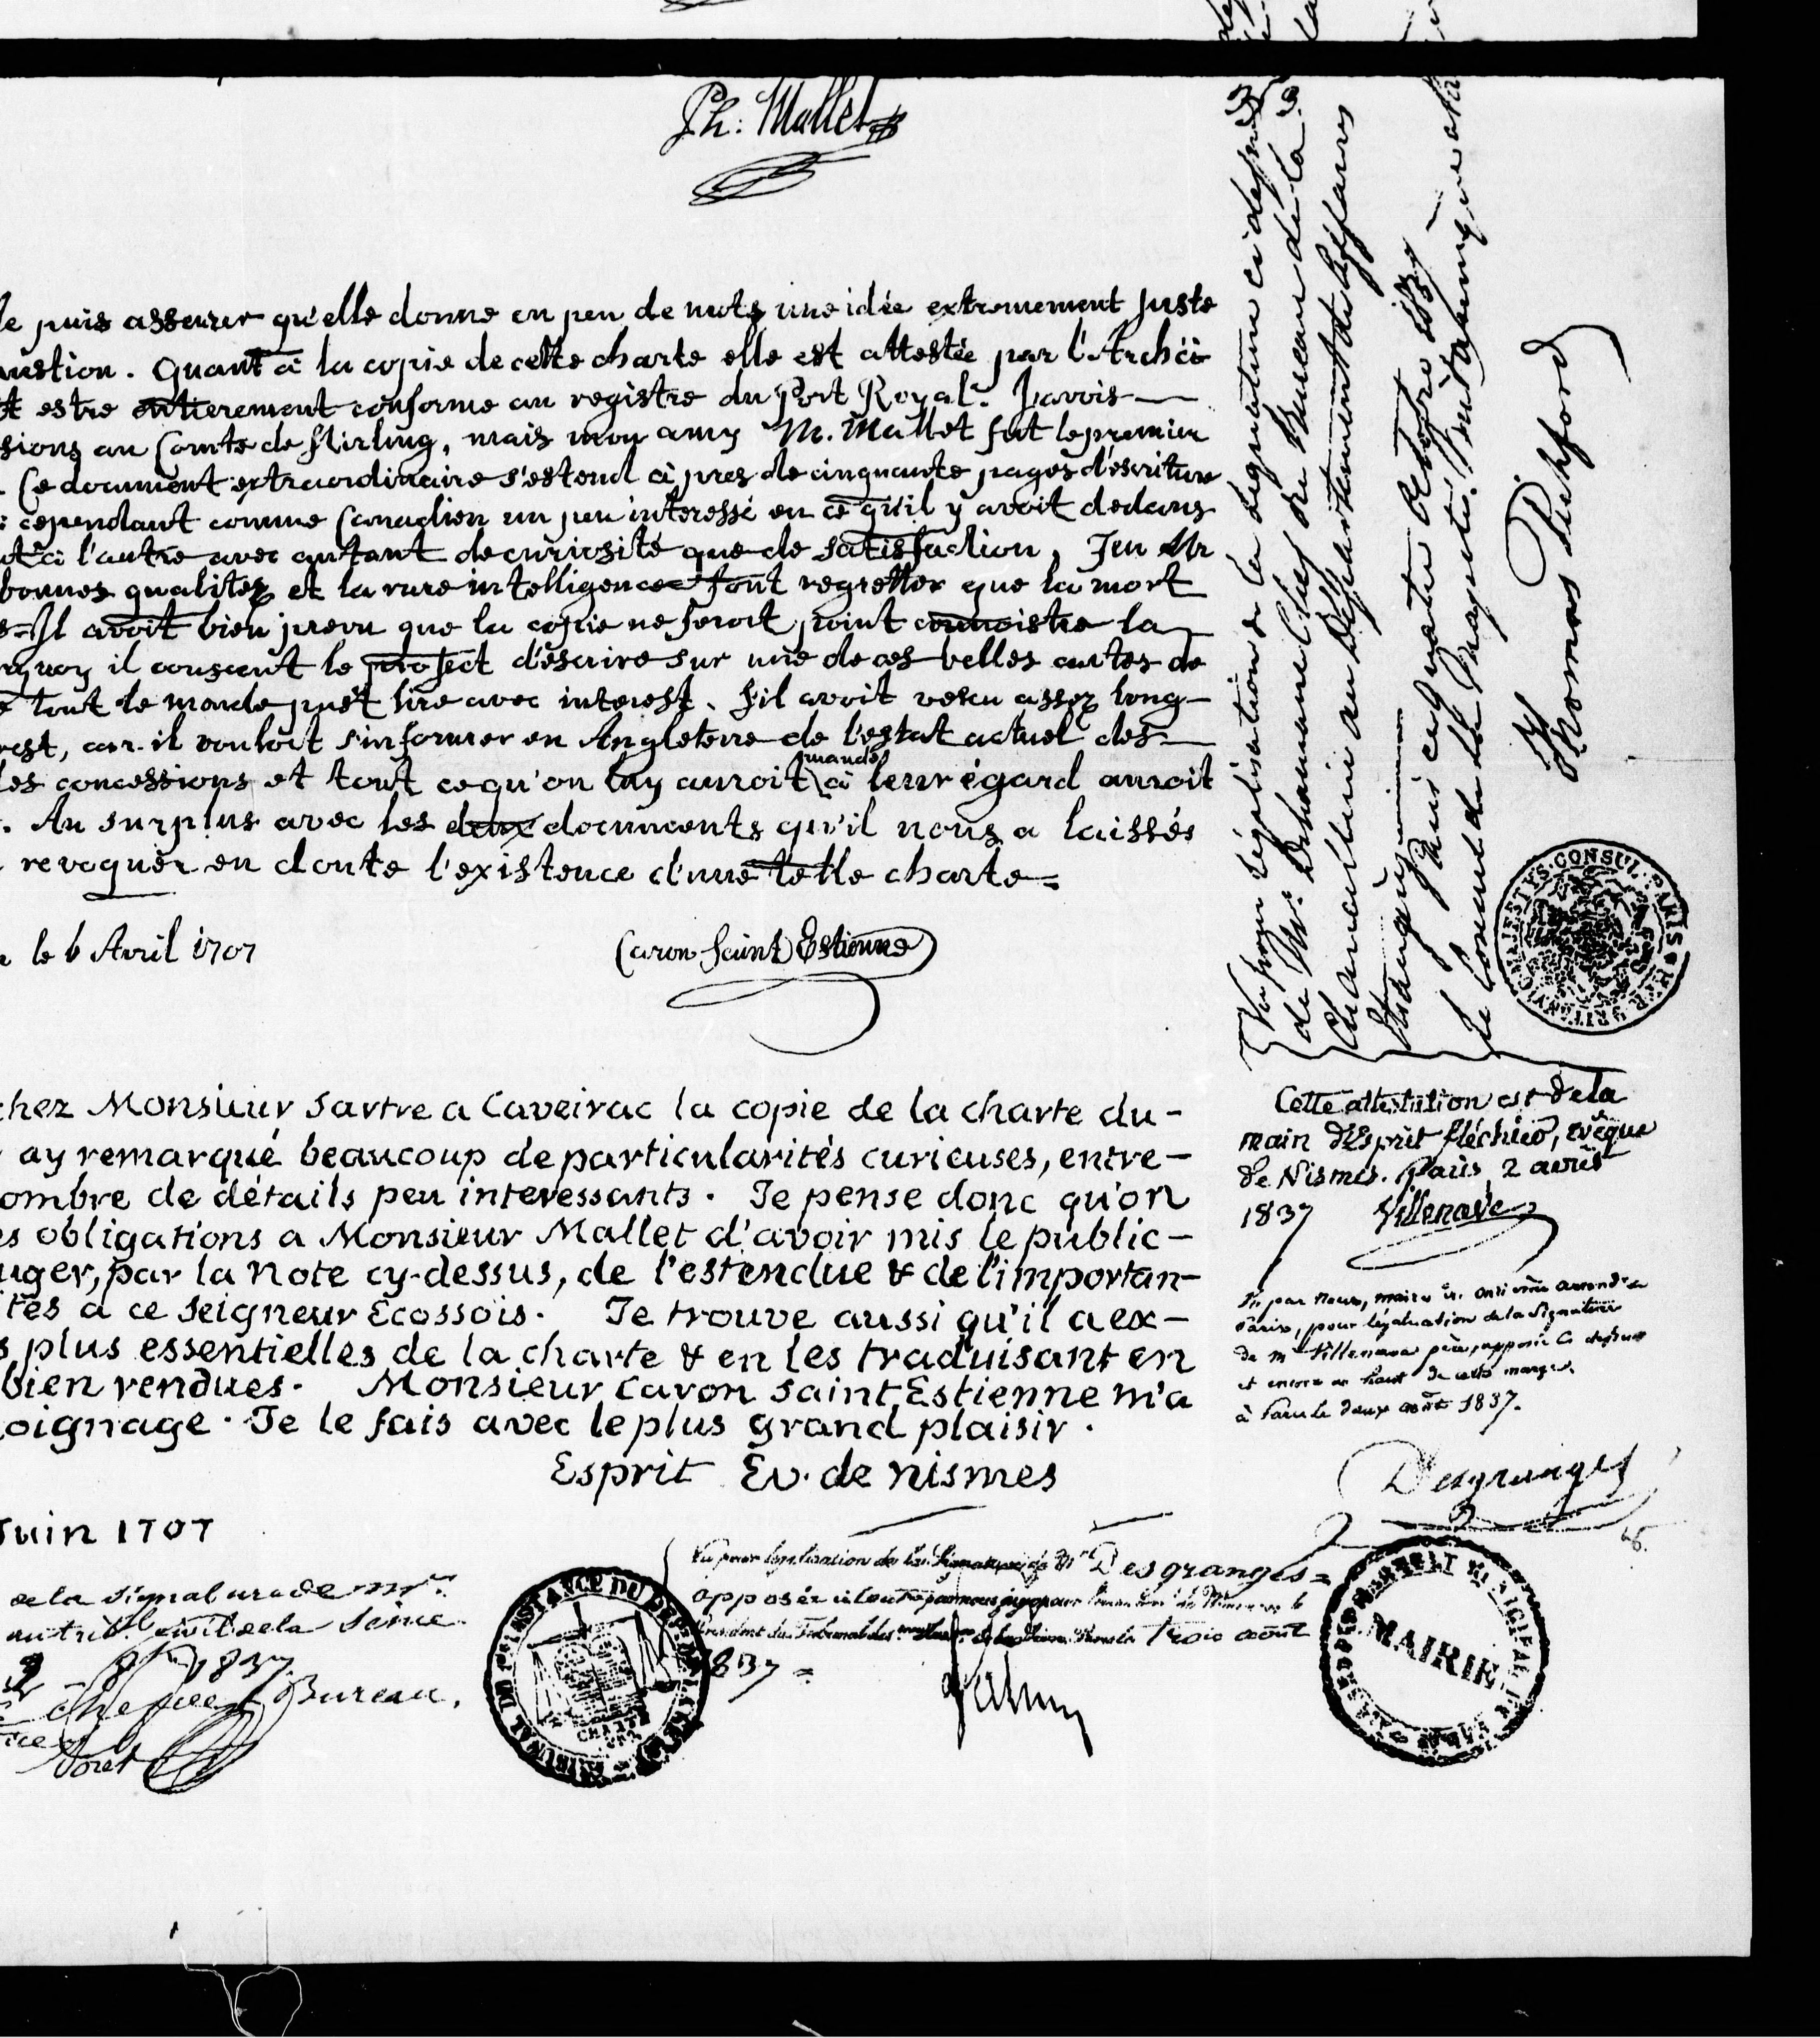 Ph. Mallet
Je puis asseurer qu'elle donne en peu de mots une idée extremement juste
uestion. Quant à la copie de cette charte elle est attestée par l'Archi-
t estre entierement conforme au registre du Port Royal. J'avois
sions au Comte de Stirling, mais mon amy M. Mallet fut le premier
. Ce document extraordinaire s'estend à pres de cinquante pages d'escriture
: cependant comme Canadien un peu interessé en ce qu'il y avoit dedans
ut à l'autre avec autant de curiosité que de satisfaction. Feu Mr
bonnes qualitez et la rare intelligence font regretter que la mort
s. Il avoit bien preveu que la copie ne feroit point connoistre la
rquoy il conseut le project d'escrire sur une de ces belles cartes de
e tout le monde pust lire avec interest. S'il avoit vescu assez long-
rest, car il vouloit s'informer en Angleterre de l'estat actuel des
les concessions et tout ce qu'on luy auroit mandé à leur égard auroit
. Au surplus avec les deux documents qu'il nous a laissés
revoquer en doute l'existence d'une telle charte =
le 6 Avril 1707
Caron Saint Estienne
chez Monsieur Sartre a Caveirac la copie de la charte du-
ay remarqué beaucoup de particularités curieuses, entre-
ombre de détails peu interessants. Je pense donc qu'on
es obligations a Monsieur Mallet d'avoir mis le public-
uger, par la note cy-dessus, de l'estendue & de l'importan-
tés a ce seigneur Ecossois. Je trouve aussi qu'il a ex-
s plus essentielles de la charte & en les traduisant en
bien rendues. Monsieur Caron Saint Estienne m'a
oignage. Je le fais avec le plus grand plaisir.
Esprit Ev. de nismes
Juin 1707
de la signature de Mr.
au trib.l civil de la Seine
1837
Le chef de Bureau,
Vu pour légalisation de la signature de Mr Desgranges =
apposée ci contre par nous juge pour
Président du Tribunal de la Seine Paris le Trois août
1837 =
TRIBUNAL DU 1ER INSTANCE DU DEPT DE LA SEINE
CHARTE
Vu pour légalisation de la signature ci dessus
de Mr. Dehaumane Chef du Bureau de la
Chancellerie au Département des Affaires
Etrangères
Paris ce quatre Octobre 1837
Le Consul de Sa Majesté Britannique à Paris
Thomas Pickford
CONSUL. PARIS HER BRITANNIC MAJESTYS
Cette attestation est de la
main d'Esprit fléchier, evêque
de Nismes. Paris, 2 août
1837 Villenave
Vu par nous, maire du onzième arrond.t de
Paris, pour légalisation de la signature
de Mr Villenave père, apposée ci dessus
et encore au haut de cette marge.
à Paris le deux août 1837.
Desgranges
MAIRIE